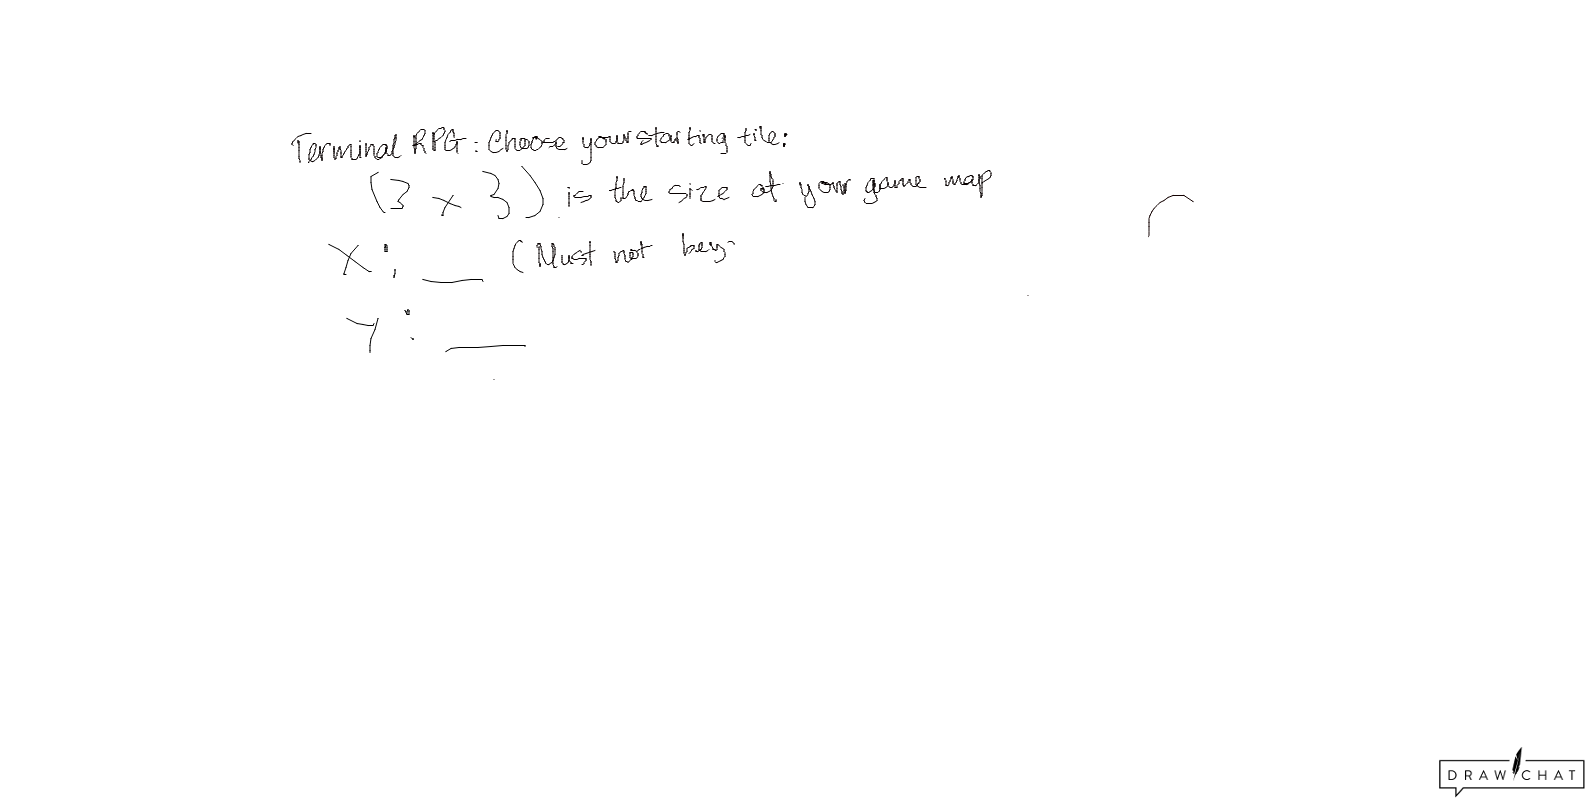 Terminal RPG: Choose your starting tile:
(3 x 3) is the size of your game map
X: __ (Must not bey-
Y: __
DRAW CHAT